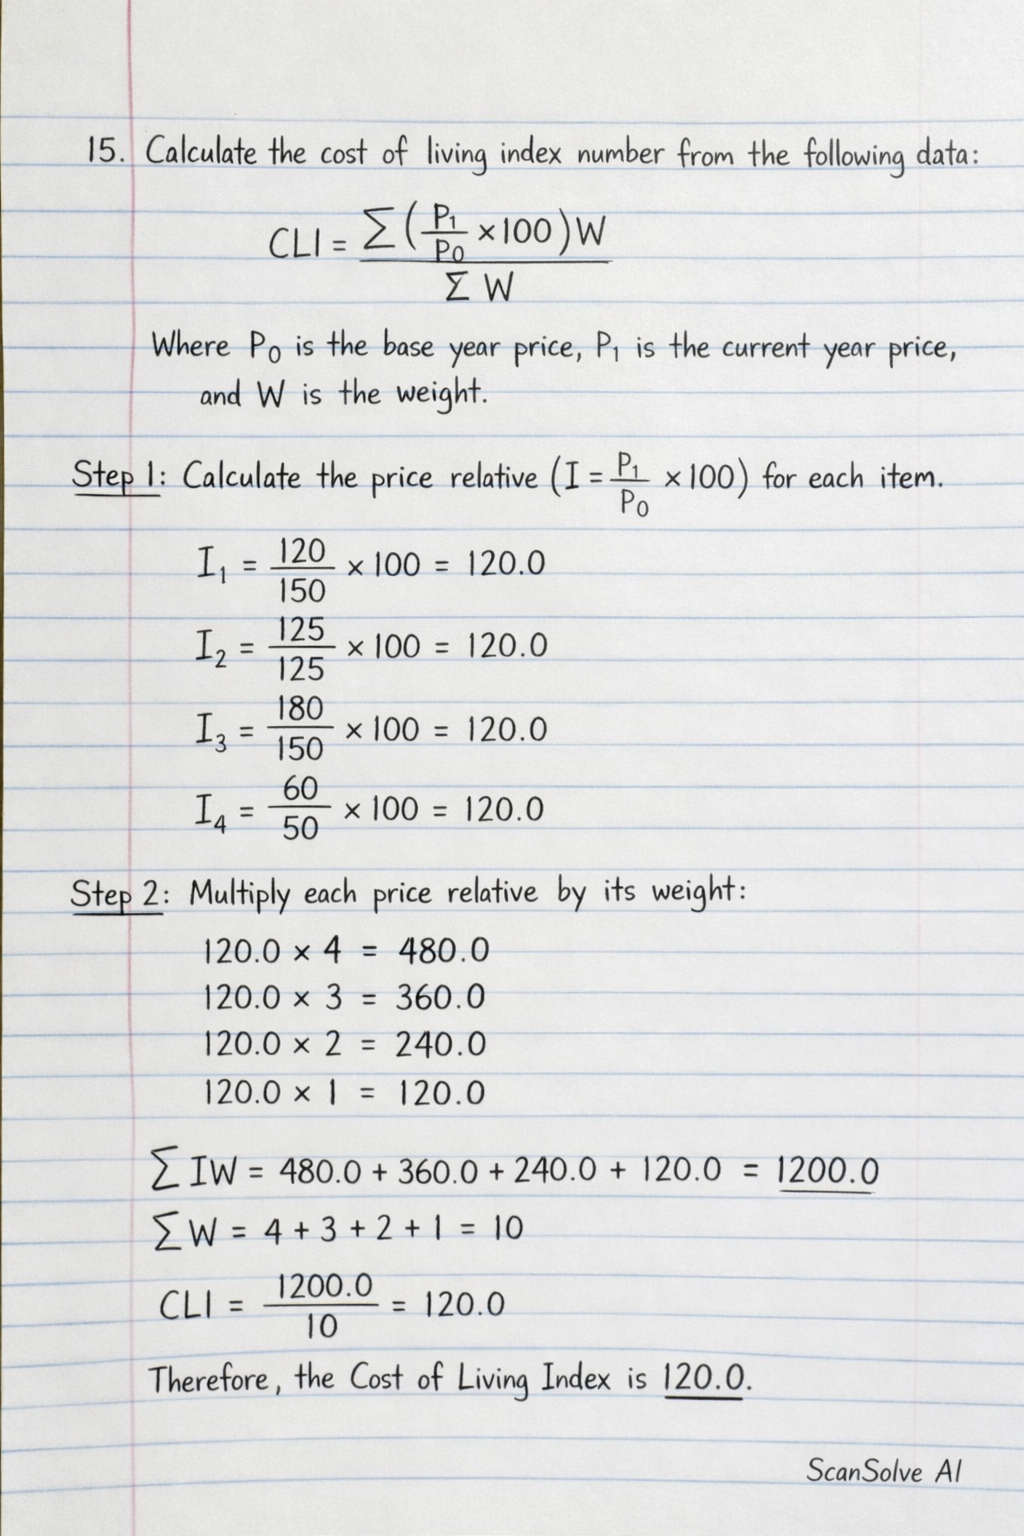 15. Calculate the cost of living index number from the following data:
CLI = Σ(P₁/P₀ ×100)W / Σ W
Where P₀ is the base year price, P₁ is the current year price,
and W is the weight.
Step 1: Calculate the price relative (I = P₁/P₀ ×100) for each item.
I₁ = 120/150 × 100 = 120.0
I₂ = 125/125 × 100 = 120.0
I₃ = 180/150 × 100 = 120.0
I₄ = 60/50 × 100 = 120.0
Step 2: Multiply each price relative by its weight:
120.0 × 4 = 480.0
120.0 × 3 = 360.0
120.0 × 2 = 240.0
120.0 × 1 = 120.0
Σ IW = 480.0 + 360.0 + 240.0 + 120.0 = 1200.0
Σ W = 4 + 3 + 2 + 1 = 10
CLI = 1200.0/10 = 120.0
Therefore, the Cost of Living Index is 120.0.
ScanSolve AI